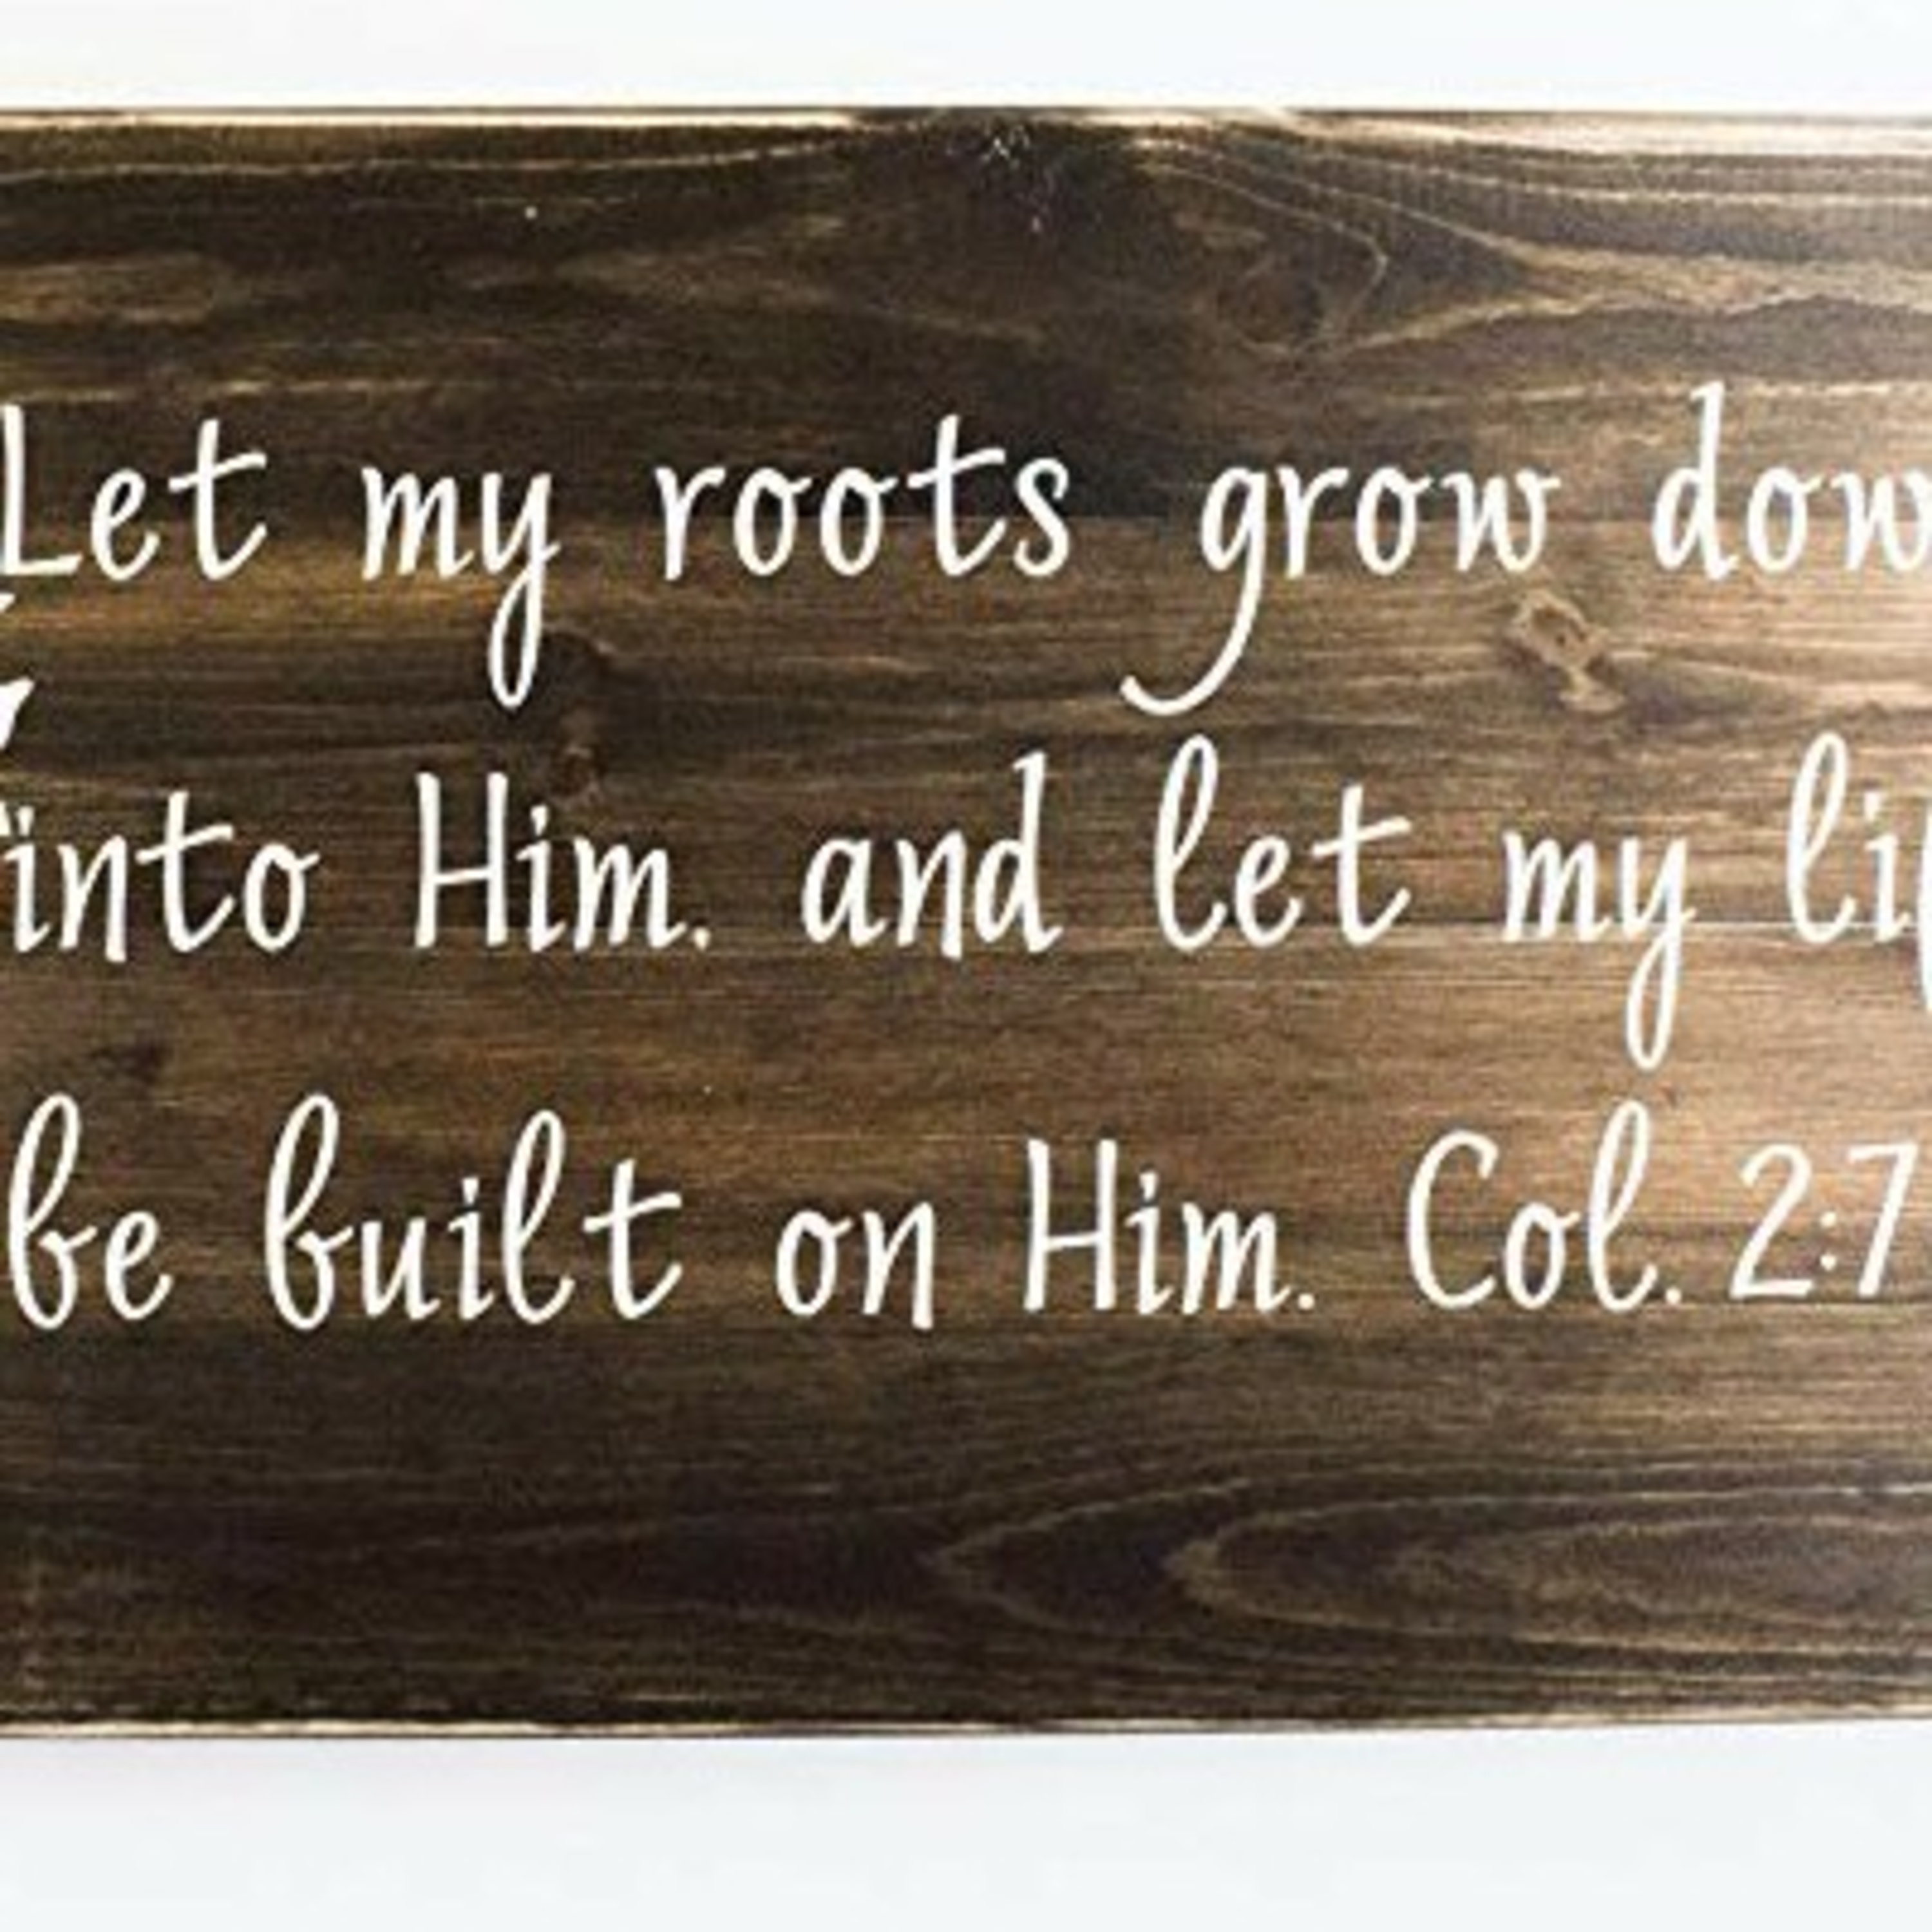 Let my roots grow dow
into Him. and let my li
be built on Him. Col. 2:7